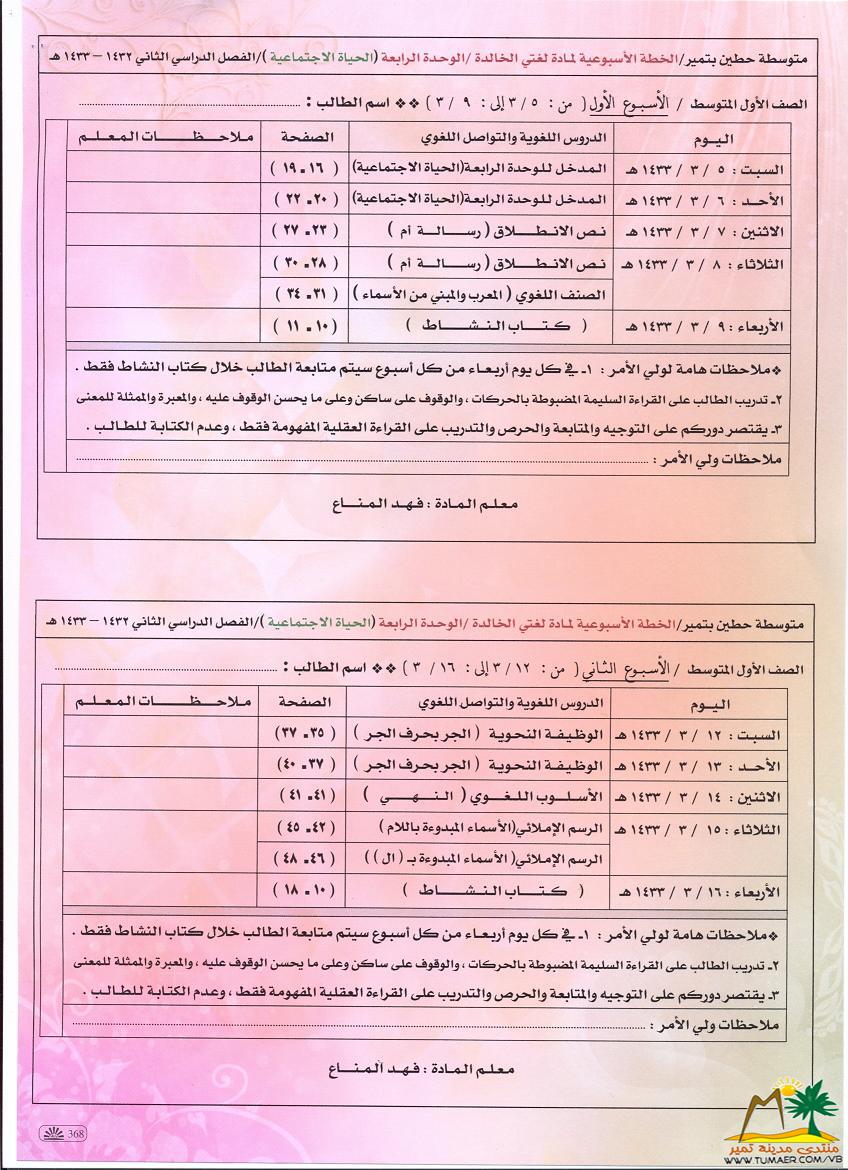 متوسطة حطين بتمير/الخطة الأسبوعية لمادة لغتي الخالدة /الوحدة الرابعة (الحياة الاجتماعية )/الفصل الدراسي الثاني ١٤٣٢ – ١٤٣٣ هـ
الصف الأول المتوسط / الأسبوع الأول ( من : ٥ /٣ إلى : ٩ / ٣ ) ❖❖ اسم الطالب : ..........
اليـوم الدروس اللغوية والتواصل اللغوي الصفحة ملاحظـات المعلـم
السبت : ٥ / ٣ / ١٤٣٣ هـ المدخل للوحدة الرابعة(الحياة الاجتماعية) ( ١٦ـ ١٩ )
الأحـد : ٦ / ٣ / ١٤٣٣ هـ المدخل للوحدة الرابعة(الحياة الاجتماعية) ( ٢٠ـ ٢٢ )
الاثنين : ٧ / ٣ / ١٤٣٣ هـ نـص الانـطـلاق ( رسـالـة أم ) ( ٢٣ـ ٢٧ )
الثلاثاء : ٨ / ٣ / ١٤٣٣ هـ نـص الانـطـلاق ( رسـالـة أم ) ( ٢٨ـ ٣٠ )
الصنف اللغوي ( المعرب والمبني من الأسماء ) ( ٣١ـ ٣٤ )
الأربعاء : ٩ / ٣ / ١٤٣٣ هـ ( كـتـاب الـنـشـاط ) ( ١٠ـ ١١ )
❖ملاحظات هامة لولي الأمر : ١ـ في كل يوم أربعاء من كل أسبوع سيتم متابعة الطالب خلال كتاب النشاط فقط .
٢ـ تدريب الطالب على القراءة السليمة المضبوطة بالحركات ، والوقوف على ساكن وعلى ما يحسن الوقوف عليه ، والمعبرة والممثلة للمعنى
٣ـ يقتصر دوركم على التوجيه والمتابعة والحرص والتدريب على القراءة العقلية المفهومة فقط ، وعدم الكتابة للطالب .
ملاحظات ولي الأمر : ..........
معلم المادة : فهد المنـاع
متوسطة حطين بتمير/الخطة الأسبوعية لمادة لغتي الخالدة /الوحدة الرابعة (الحياة الاجتماعية )/الفصل الدراسي الثاني ١٤٣٢ – ١٤٣٣ هـ
الصف الأول المتوسط / الأسبوع الثاني ( من : ١٢ /٣ إلى : ١٦ / ٣ ) ❖❖ اسم الطالب : ..........
اليـوم الدروس اللغوية والتواصل اللغوي الصفحة ملاحظـات المعلـم
السبت : ١٢ / ٣ / ١٤٣٣ هـ الوظيفة النحوية ( الجر بحرف الجر ) (٣٥ـ ٣٧)
الأحـد : ١٣ / ٣ / ١٤٣٣ هـ الوظيفة النحوية ( الجر بحرف الجر ) (٣٧ـ ٤٠)
الاثنين : ١٤ / ٣ / ١٤٣٣ هـ الأسلوب اللـغـوي ( الـنـهـي ) (٤١ـ ٤١ )
الثلاثاء : ١٥ / ٣ / ١٤٣٣ هـ الرسم الإملائي(الأسماء المبدوءة باللام ) ( ٤٢ـ ٤٥ )
الرسم الإملائي( الأسماء المبدوءة بـ ( ال )) ( ٤٦ـ ٤٨ )
الأربعاء : ١٦ / ٣ / ١٤٣٣ هـ ( كـتـاب الـنـشـاط ) ( ١٠ـ ١٨ )
❖ملاحظات هامة لولي الأمر : ١ـ في كل يوم أربعاء من كل أسبوع سيتم متابعة الطالب خلال كتاب النشاط فقط .
٢ـ تدريب الطالب على القراءة السليمة المضبوطة بالحركات ، والوقوف على ساكن وعلى ما يحسن الوقوف عليه ، والمعبرة والممثلة للمعنى
٣ـ يقتصر دوركم على التوجيه والمتابعة والحرص والتدريب على القراءة العقلية المفهومة فقط ، وعدم الكتابة للطالب .
ملاحظات ولي الأمر : ..........
معلم المادة : فهد المنـاع
368
منتدى مدينة تمير
WWW.TUMAER.COM/VB